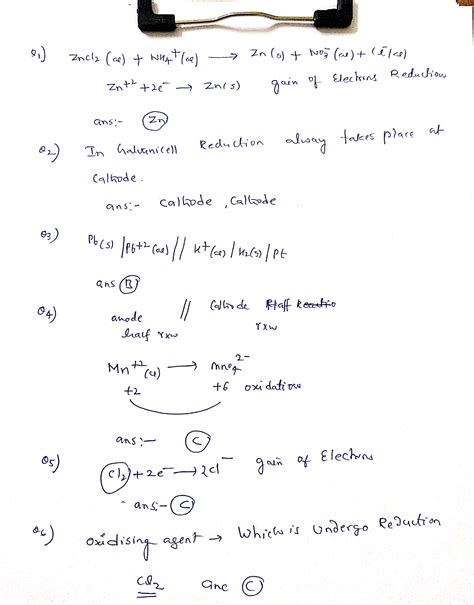 Q1) ZnCl2 (aq) + NH4+ (aq) ⟶ Zn (s) + NO3- (aq) + Cl- (aq)
Zn+2 + 2e- → Zn(s) gain of Electrons Reduction
ans:- Zn
Q2) In Galvanicell Reduction alway takes place at
Cathode.
ans:- Cathode, Cathode
Q3) Pb(s) / Pb+2 (aq) // H+ (aq) / H2(g) / Pt
ans B
Q4) anode // Cathode Half Reactio
half rxn rxn
Mn+2 (aq) ⟶ MnO4 2-
+2 +6 oxidation
ans:- C
Q5) Cl2 + 2e- ⟶ 2Cl- gain of Electrons
ans- C
Q6) oxidising agent → Which is Undergo Reduction
Cl2 ans C